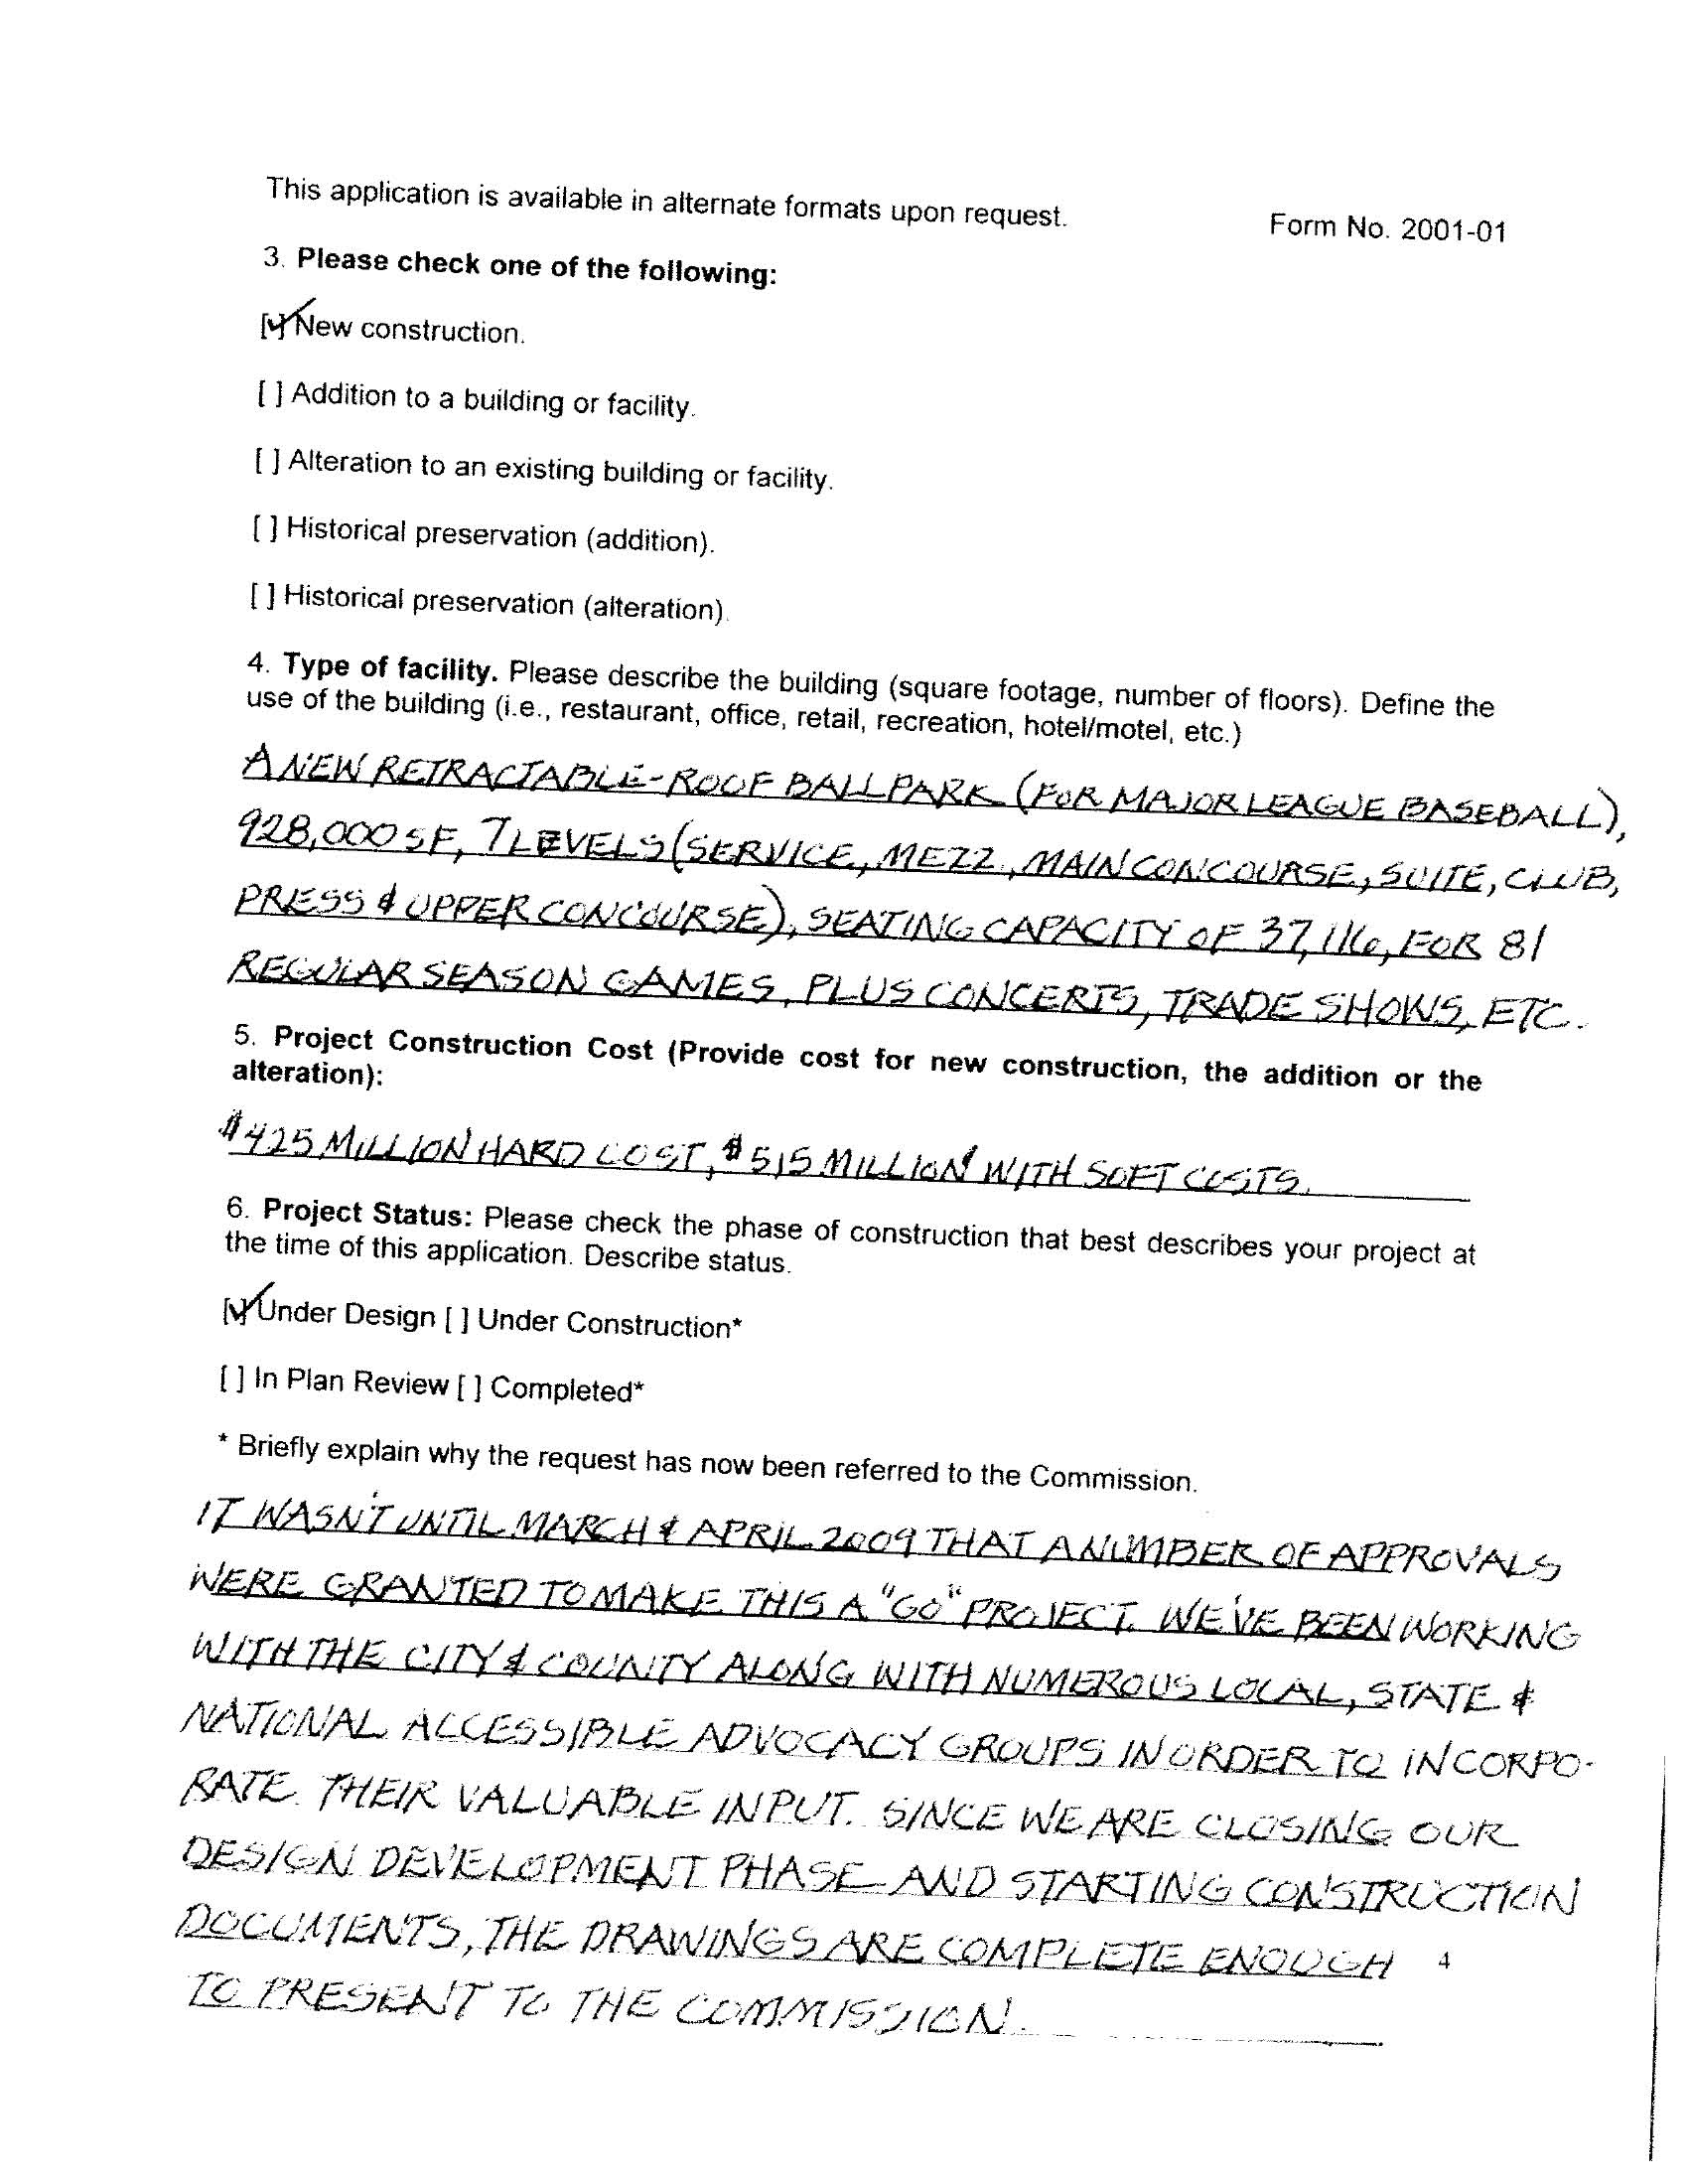 This application is available in alternate formats upon request.
Form No. 2001-01
3. Please check one of the following:
[✓] New construction.
[ ] Addition to a building or facility.
[ ] Alteration to an existing building or facility.
[ ] Historical preservation (addition).
[ ] Historical preservation (alteration).
4. Type of facility. Please describe the building (square footage, number of floors). Define the
use of the building (i.e., restaurant, office, retail, recreation, hotel/motel, etc.)
A NEW RETRACTABLE-ROOF BALLPARK (FOR MAJOR LEAGUE BASEBALL),
928,000 SF, 7 LEVELS (SERVICE, MEZZ, MAIN CONCOURSE, SUITE, CLUB,
PRESS & UPPER CONCOURSE), SEATING CAPACITY OF 37,116, FOR 81
REGULAR SEASON GAMES, PLUS CONCERTS, TRADE SHOWS, ETC.
5. Project Construction Cost (Provide cost for new construction, the addition or the
alteration):
$425 MILLION HARD COST, $515 MILLION WITH SOFT COSTS.
6. Project Status: Please check the phase of construction that best describes your project at
the time of this application. Describe status.
[✓] Under Design [ ] Under Construction*
[ ] In Plan Review [ ] Completed*
* Briefly explain why the request has now been referred to the Commission.
IT WASN'T UNTIL MARCH & APRIL 2009 THAT A NUMBER OF APPROVALS
WERE GRANTED TO MAKE THIS A "GO" PROJECT. WE'VE BEEN WORKING
WITH THE CITY & COUNTY ALONG WITH NUMEROUS LOCAL, STATE &
NATIONAL ACCESSIBLE ADVOCACY GROUPS IN ORDER TO INCORPO-
RATE THEIR VALUABLE INPUT. SINCE WE ARE CLOSING OUR
DESIGN DEVELOPMENT PHASE AND STARTING CONSTRUCTION
DOCUMENTS, THE DRAWINGS ARE COMPLETE ENOUGH
4
TO PRESENT TO THE COMMISSION.